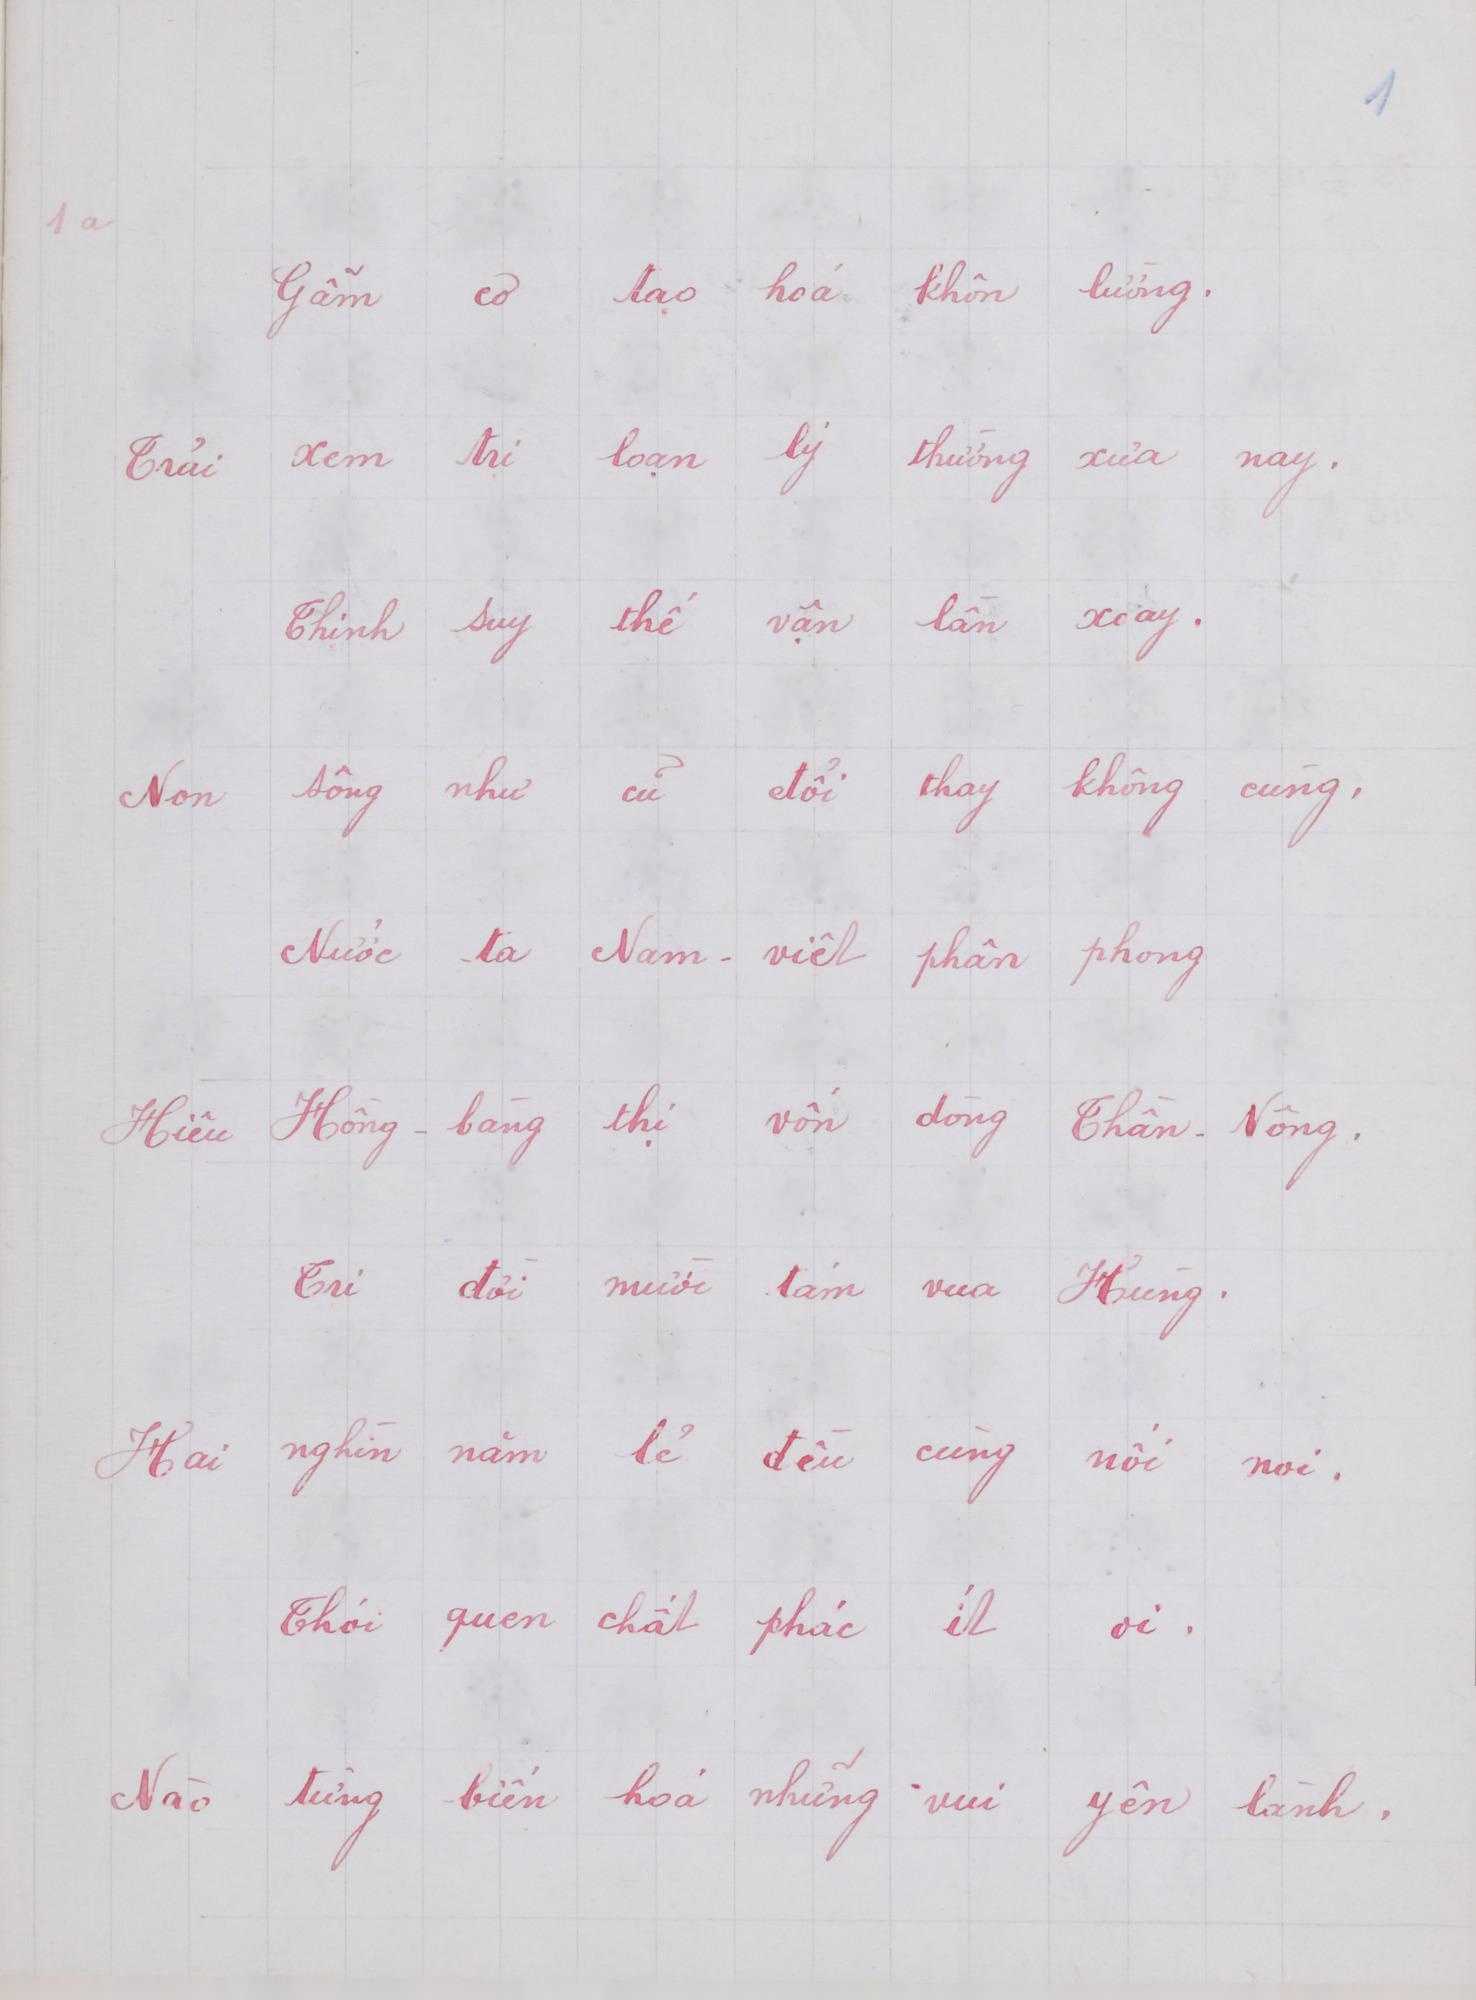 1
1a
Gẫm cơ tạo hoá khôn lường.
Trải xem trị loạn lý thường xưa nay.
Thịnh suy thế vận lần xoay.
Non sông như cũ đổi thay không cùng,
Nước ta Nam-việt phân phong
Hiệu Hồng-bàng thị vốn dòng Thần-Nông.
Trị đời mười tám vua Hùng.
Hai nghìn năm lẻ đều cùng nối noi.
Thói quen chất phác ít oi.
Nào từng biến hoá những vui yên lành.